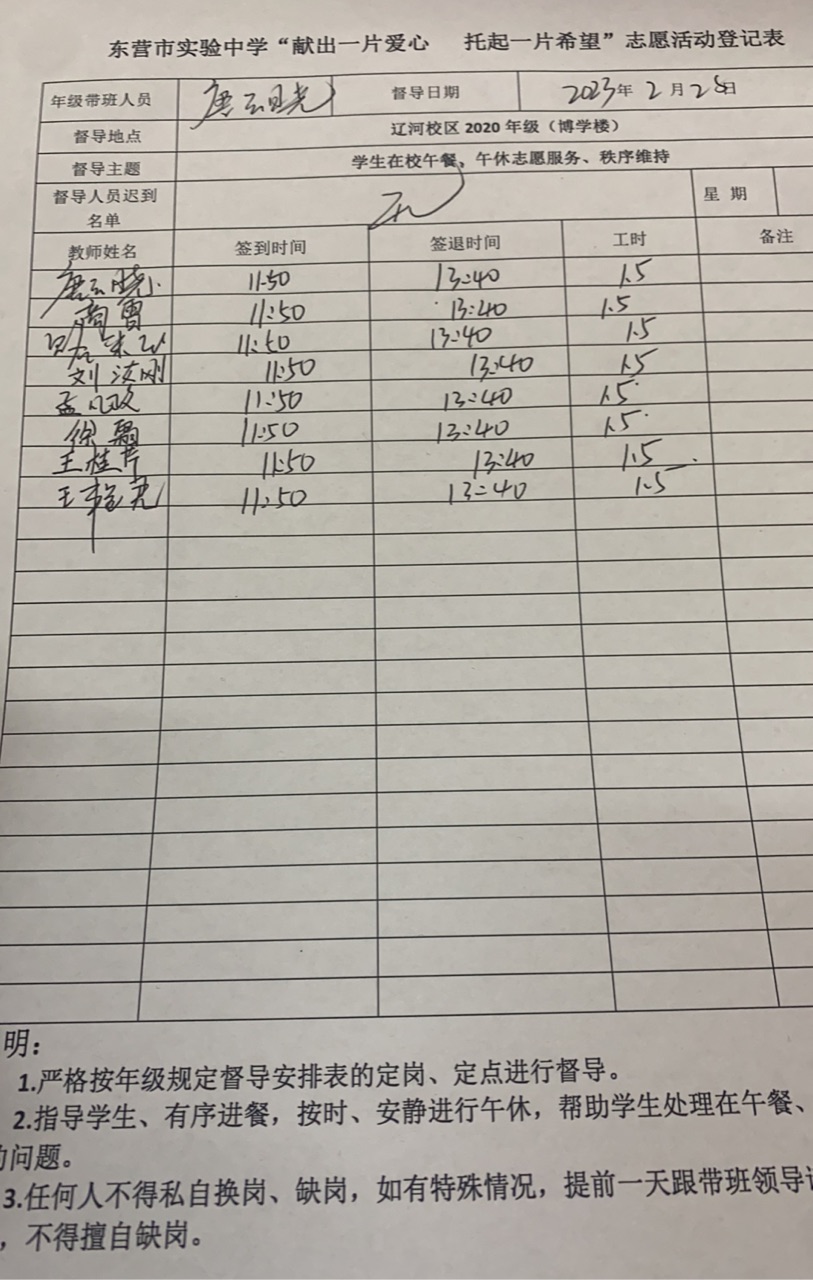 东营市实验中学“献出一片爱心 托起一片希望”志愿活动登记表
年级带班人员 唐云晓 督导日期 2023年2月28日
督导地点 辽河校区2020年级（博学楼）
督导主题 学生在校午餐、午休志愿服务、秩序维持
督导人员迟到名单 无 星 期
教师姓名 签到时间 签退时间 工时 备注
唐云晓 11:50 13:40 1.5
11:50 13:40 1.5
11:50 13:40 1.5
刘汝刚 11:50 13:40 1.5
孟凡政 11:50 13:40 1.5
徐 11:50 13:40 1.5
王桂芹 11:50 13:40 1.5
王 11:50 13:40 1.5
明：
1.严格按年级规定督导安排表的定岗、定点进行督导。
2.指导学生、有序进餐，按时、安静进行午休，帮助学生处理在午餐、
问题。
3.任何人不得私自换岗、缺岗，如有特殊情况，提前一天跟带班领导
，不得擅自缺岗。